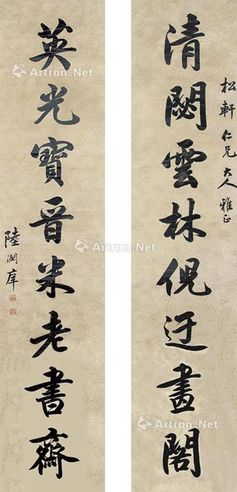 松軒仁兄大人雅正
清閟雲林倪迂畫閣
英光寶晋米老書齋
陸潤庠
Artron.Net
Artron.Net
Artron.Net
Artron.Net
Artron.Net
Artron.Net